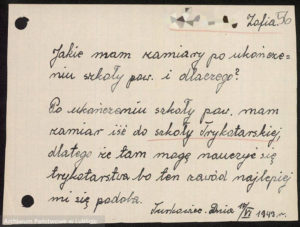 Zofia 56
Jakie mam zamiary po ukończe=
niu szkoły pow. i dlaczego?
Po ukończeniu szkoły pow. mam
zamiar iść do szkoły Trykotarskiej,
dlatego że tam mogę nauczyć się
trykotarstwa bo ten zawód najlepiej
mi się podoba.
Turkowice. Dnia 1943 r.
Archiwum Państwowe w Lublinie